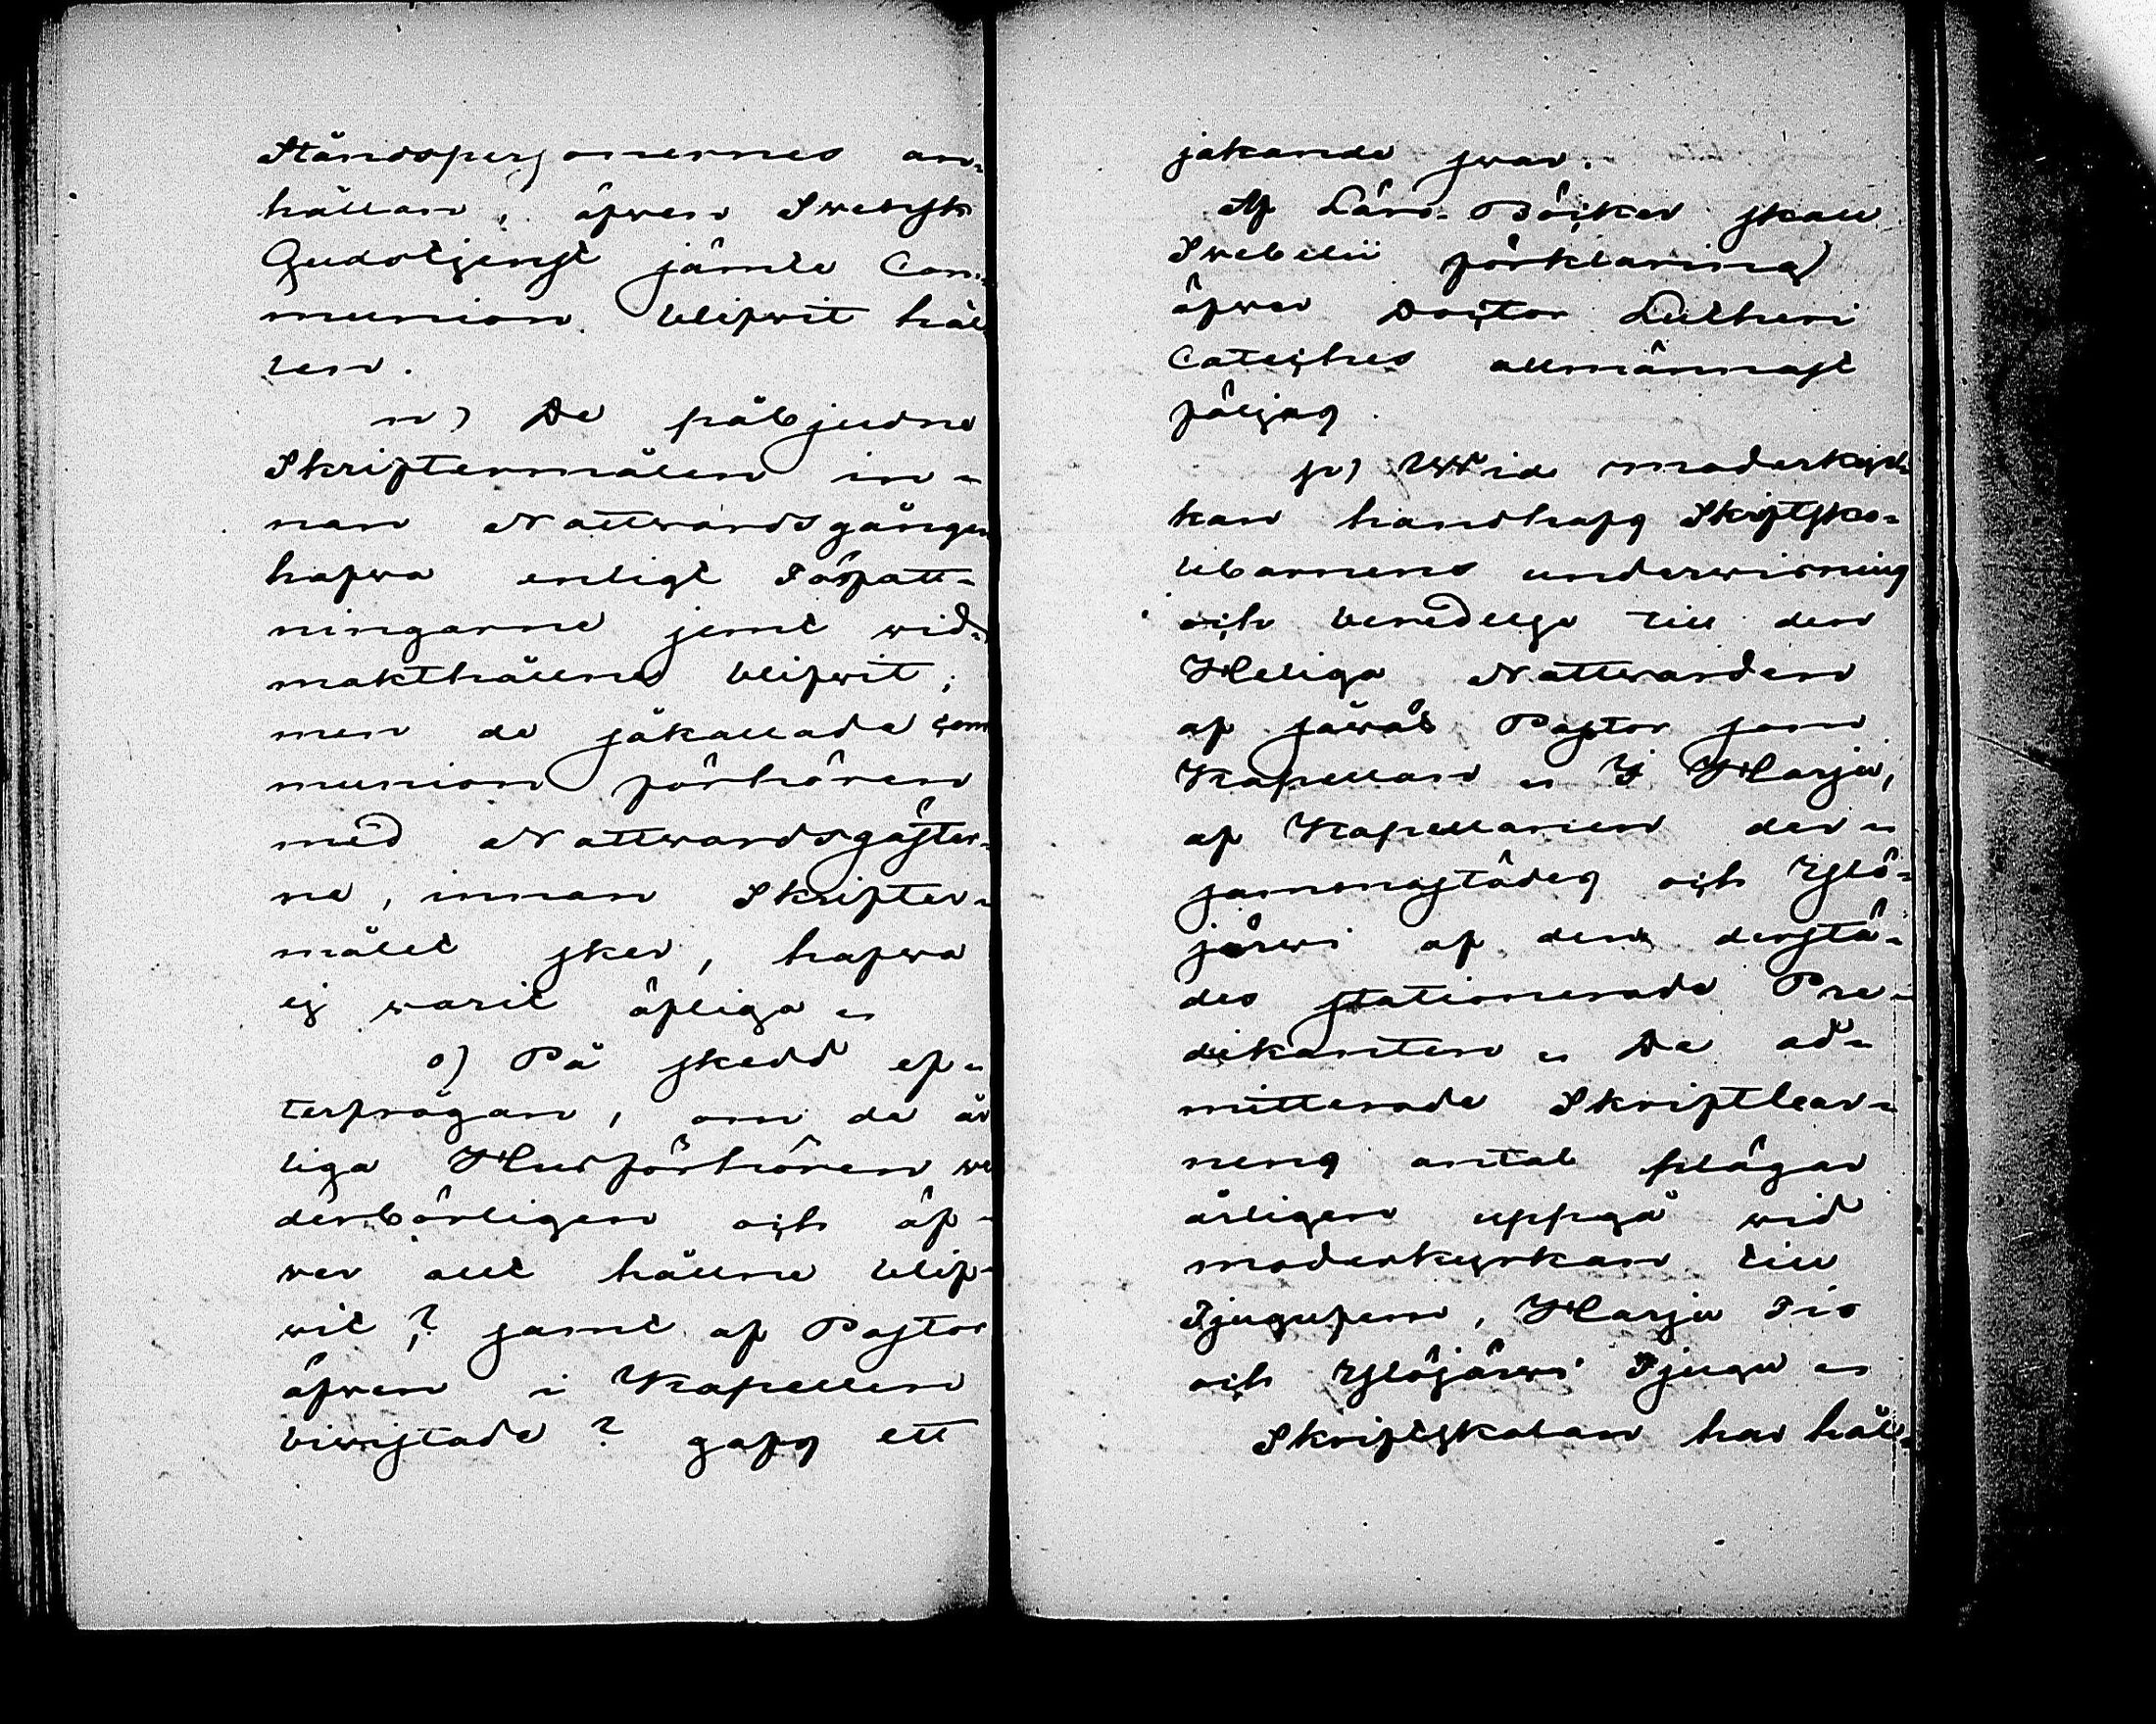 Ståndspersonernes an-
hållan, äfwen Swensk
Gudstjenst jämte Com-
munion blifwit håll
ten.
n) De påbjudne
Skriftermålen in-
nan Nattwardsgången
hafwa enligt Författ-
ningarne jemt wid-
makthållne blifwit;
men de såkallade Com
munion förhören
med Nattwardsgäster-
ne, innan Skrifter-
målet sker, hafwa
ej warit öfliga
o) På skedd ef-
terfrågan, om de år
liga Husförhören we
derbörligen och öf-
wer allt hållne blif-
wit? samt af Pastor
äfwen i Kapellen
biwistade? gafs ett
jakande swar.
Af Läro-Böcker skall
Swebelii förklaring
öfwer Doctor Lutheri
Cateches allmännast
följas.
p) Wid moderkyr-
kan handhafs Skriftsko-
lbarnens underwisning
och beredelse till den
Heliga Nattwarden
af såwäl Pastor som
Kapellan. I Harju,
af Kapellanen der-
sammastädes och Ylö-
järwi af den derstä-
des stationerade Pre-
dikanten. De ad-
mitterade Skriftbar-
nens antal plägar
årligen uppgå wid
moderkyrkan till
Tjugufem, Harju Tio
och Ylöjärwi Tjugu
Skriftskolan har håll-